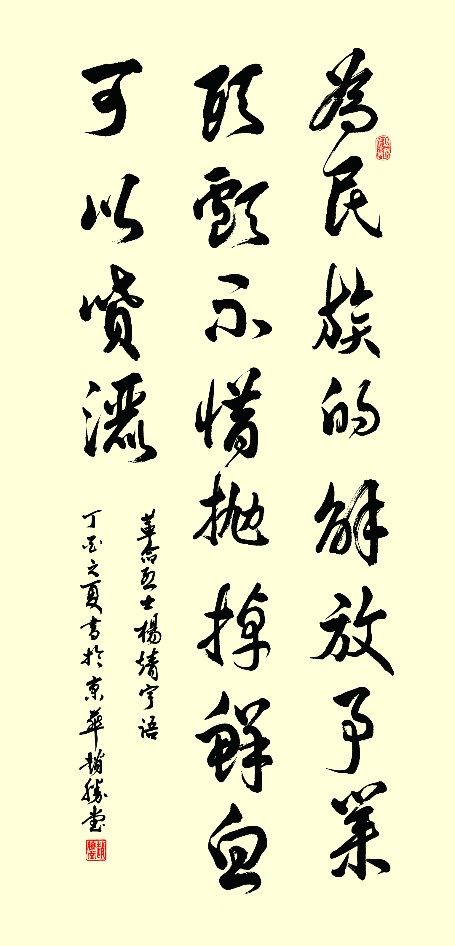 為民族的解放事業
頭顱不惜抛掉鮮血
可以噴灑
革命烈士楊靖宇語
丁酉之夏書於京華趙勝堂